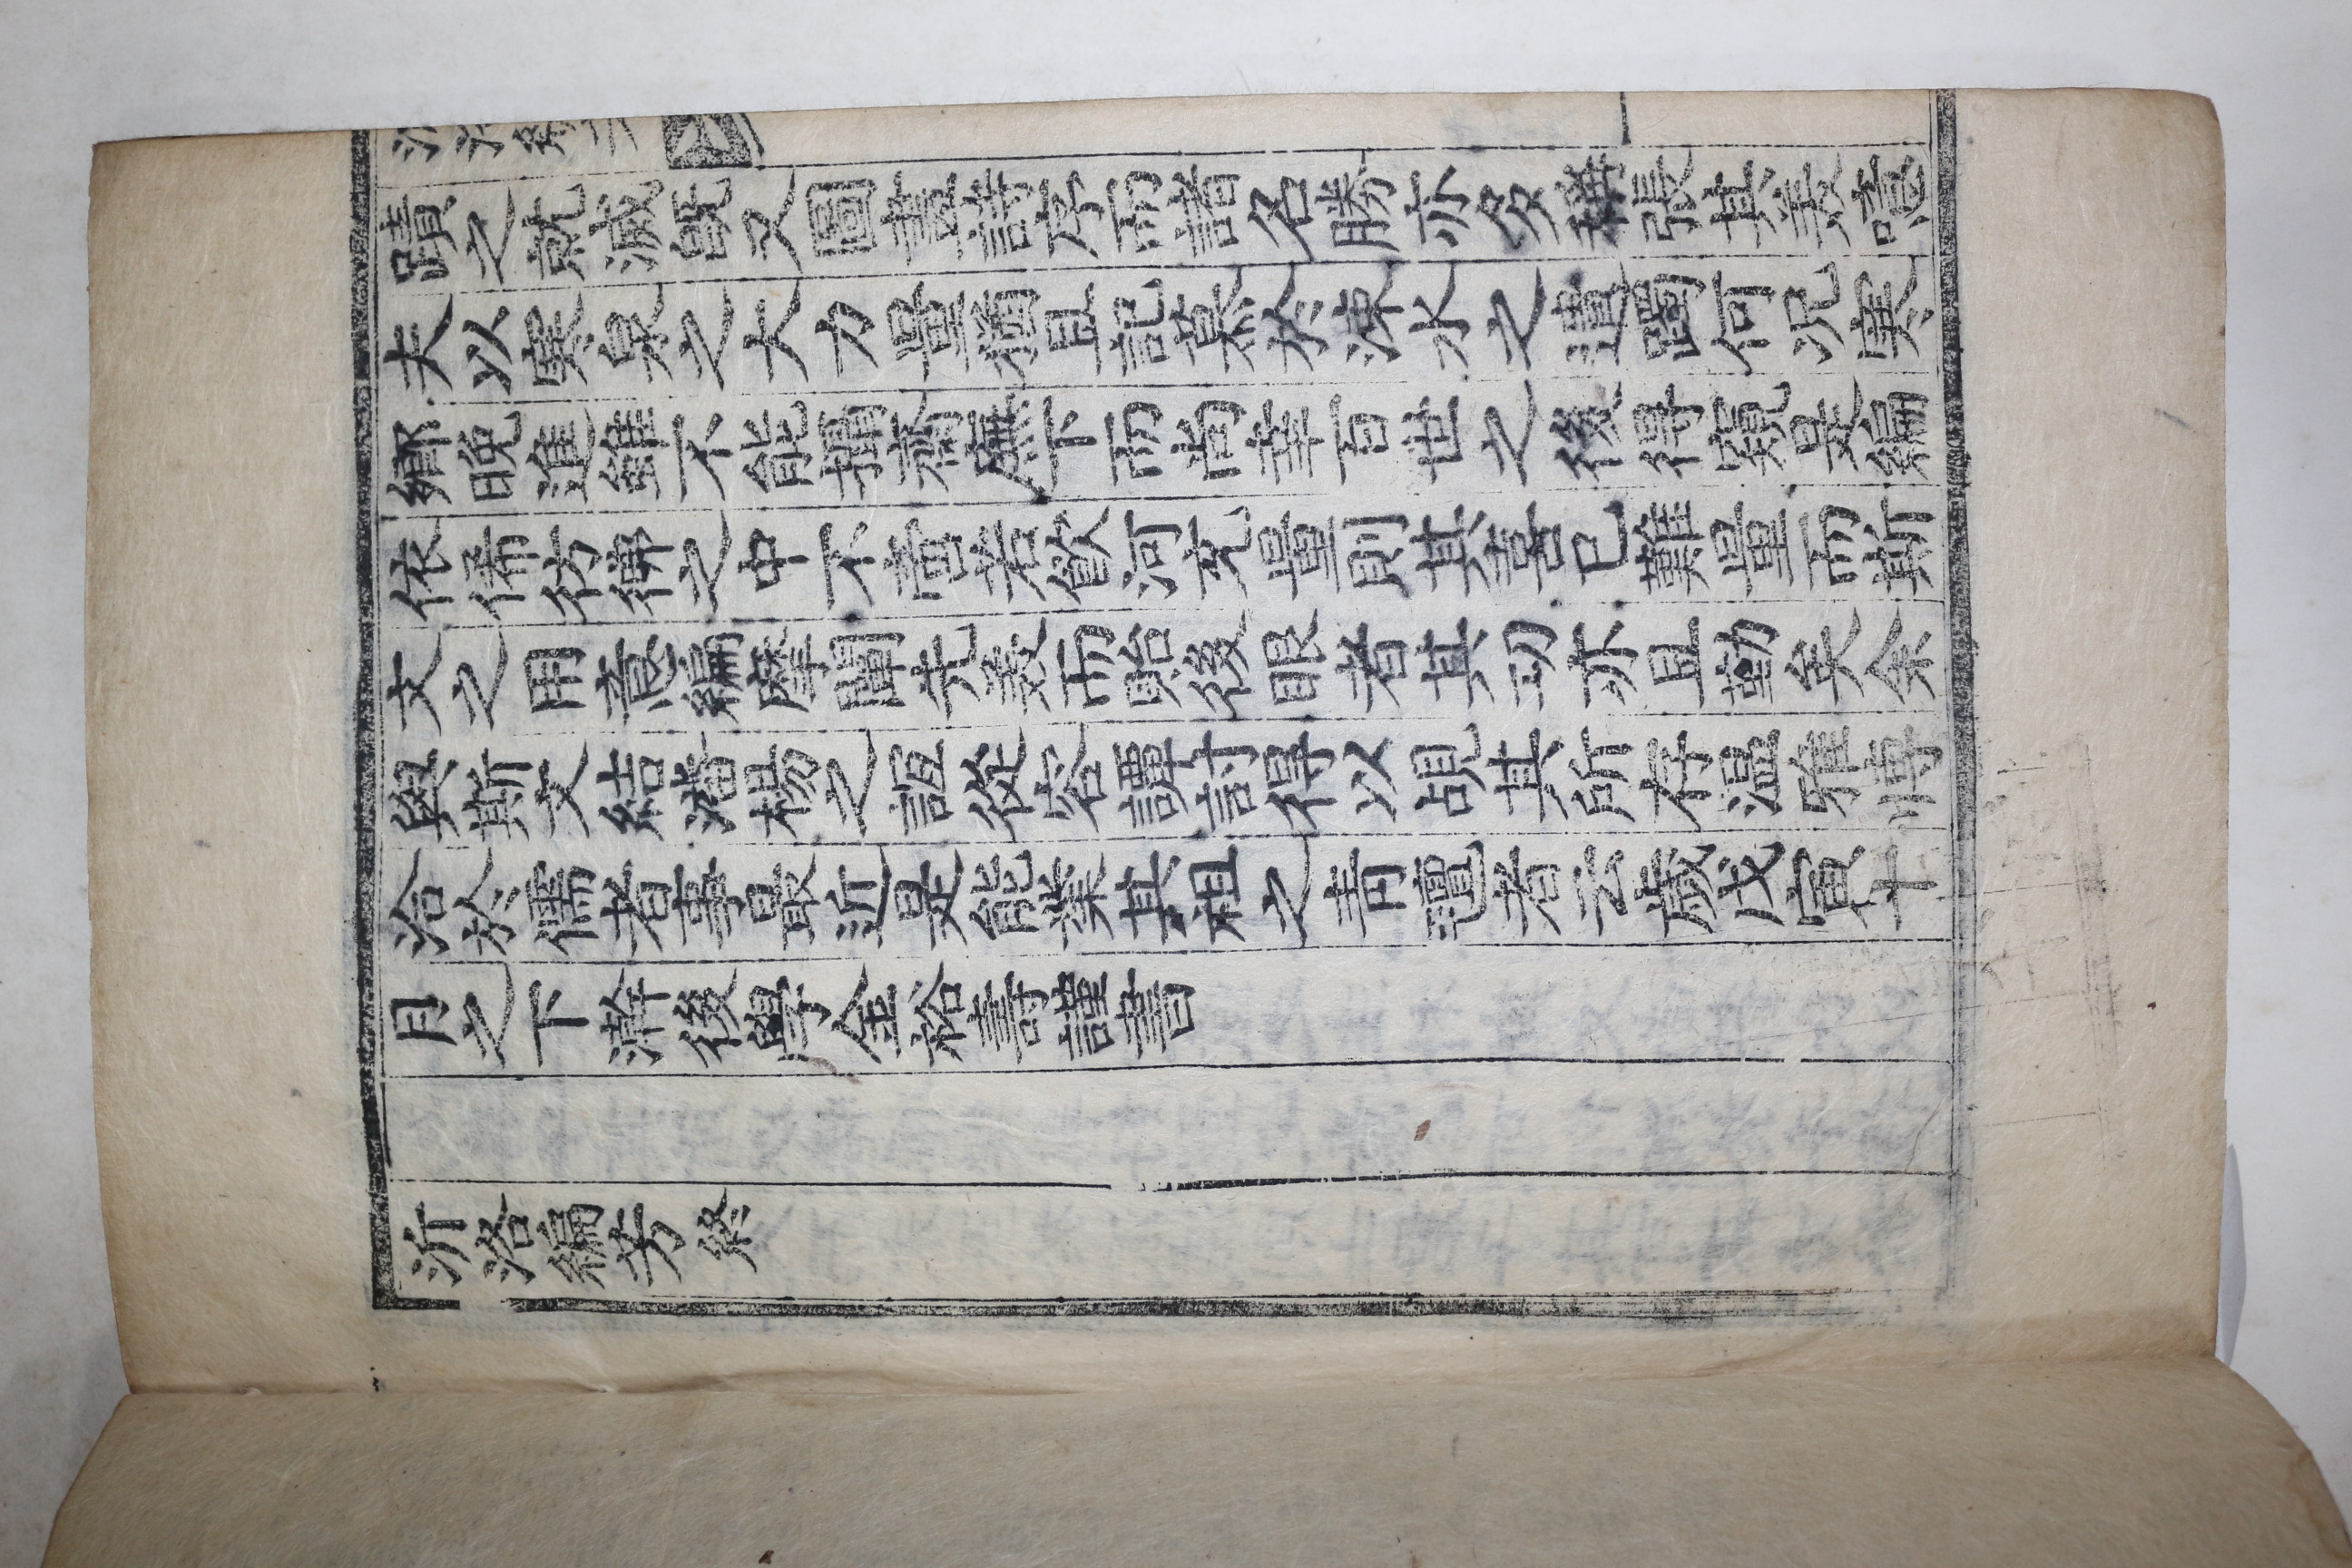 蹟之就滅旣又圖畫詩序而諸名勝亦多稱張其美噫
夫以寒泉之大力量猶且記慕於涑水之遺躅何况寒
鄉晚進雖不能攝齋廡下而尙幸百世之後得窺是編
依俙彷彿之中不啻若飮河充量則其喜已難量而斯
文之用意編摩闡先美而貽後眼者其功亦且勤矣余
與斯文結潘楊之誼從容譚討得以覘其所存温雅博
洽於儒者事最近是能業其祖之靑氊者云歲戊寅十
月之下澣後學金裕壽謹書
沂洛編芳終